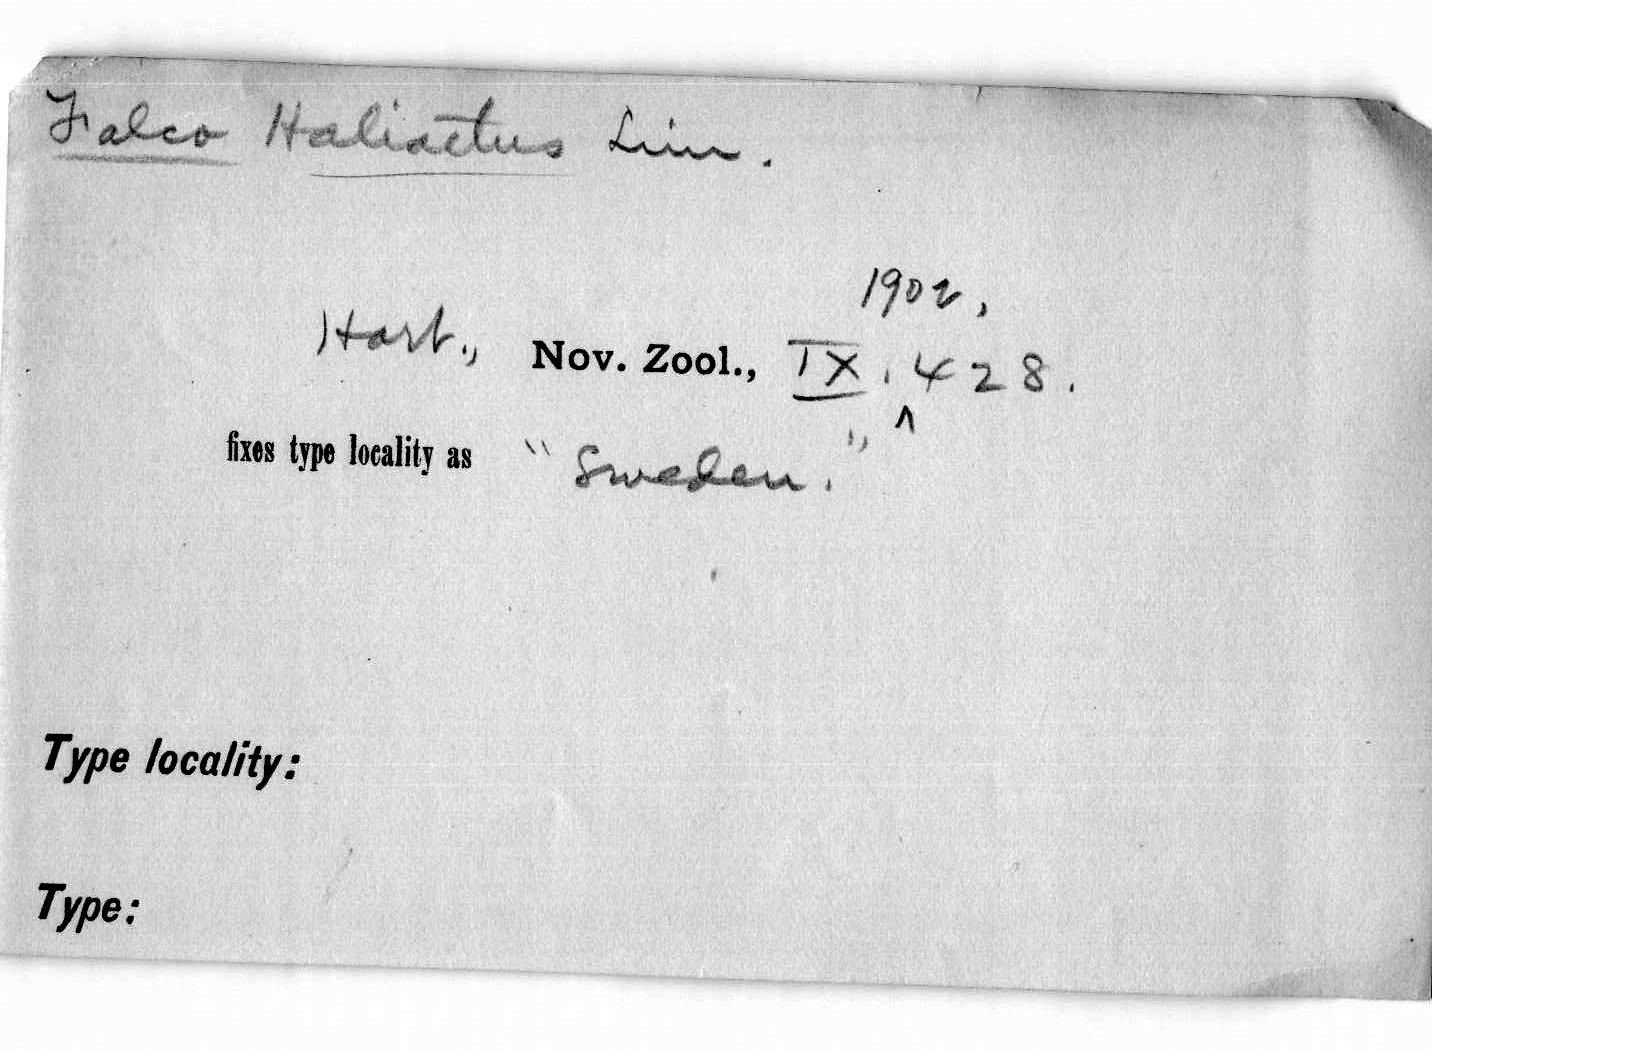 Falco Haliaetus Linn.
1902,
Hart., Nov. Zool., IX, 428.
^
fixes type locality as "Sweden."
Type locality:
Type: